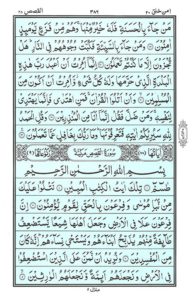 القصص ٢٨
٣٨٥
امن خلق ٢٠
مَن جَآءَ بِٱلْحَسَنَةِ فَلَهُۥ خَيْرٌ مِّنْهَا وَهُم مِّن فَزَعٍ يَوْمَئِذٍ
ءَامِنُونَ وَمَن جَآءَ بِٱلسَّيِّئَةِ فَكُبَّتْ وُجُوهُهُمْ فِى ٱلنَّارِ هَلْ
تُجْزَوْنَ إِلَّا مَا كُنتُمْ تَعْمَلُونَ إِنَّمَآ أُمِرْتُ أَنْ أَعْبُدَ رَبَّ هَٰذِهِ
ٱلْبَلْدَةِ ٱلَّذِى حَرَّمَهَا وَلَهُۥ كُلُّ شَىْءٍ وَأُمِرْتُ أَنْ أَكُونَ مِنَ
ٱلْمُسْلِمِينَ وَأَنْ أَتْلُوَا۟ ٱلْقُرْءَانَ فَمَنِ ٱهْتَدَىٰ فَإِنَّمَا يَهْتَدِى
لِنَفْسِهِۦ وَمَن ضَلَّ فَقُلْ إِنَّمَآ أَنَا۠ مِنَ ٱلْمُنذِرِينَ وَقُلِ ٱلْحَمْدُ
لِلَّهِ سَيُرِيكُمْ ءَايَٰتِهِۦ فَتَعْرِفُونَهَا وَمَا رَبُّكَ بِغَٰفِلٍ عَمَّا تَعْمَلُونَ
سُورَةُ القَصَصِ
بِسْمِ ٱللَّهِ ٱلرَّحْمَٰنِ ٱلرَّحِيمِ
طسٓمٓ تِلْكَ ءَايَٰتُ ٱلْكِتَٰبِ ٱلْمُبِينِ نَتْلُوا۟ عَلَيْكَ
مِن نَّبَإِ مُوسَىٰ وَفِرْعَوْنَ بِٱلْحَقِّ لِقَوْمٍ يُؤْمِنُونَ إِنَّ
فِرْعَوْنَ عَلَا فِى ٱلْأَرْضِ وَجَعَلَ أَهْلَهَا شِيَعًا يَسْتَضْعِفُ
طَآئِفَةً مِّنْهُمْ يُذَبِّحُ أَبْنَآءَهُمْ وَيَسْتَحْىِۦ نِسَآءَهُمْ إِنَّهُۥ كَانَ
مِنَ ٱلْمُفْسِدِينَ وَنُرِيدُ أَن نَّمُنَّ عَلَى ٱلَّذِينَ ٱسْتُضْعِفُوا۟
فِى ٱلْأَرْضِ وَنَجْعَلَهُمْ أَئِمَّةً وَنَجْعَلَهُمُ ٱلْوَٰرِثِينَ